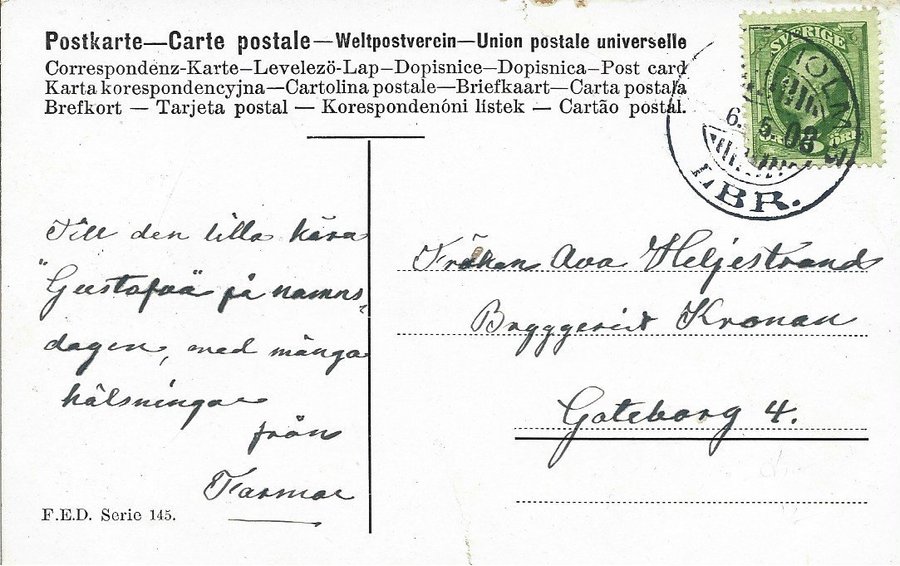 Postkarte—Carte postale—Weltpostverein—Union postale universelle
Correspondenz-Karte—Levelező-Lap—Dopisnice—Dopisnica—Post card
Karta korespondencyjna—Cartolina postale—Briefkaart—Carta postala
Brefkort — Tarjeta postal — Korespondenóni listek — Cartão postál.
SVERIGE
6.5.03
LBR.
Till den lilla kära
"Gustafva" på namns-
dagen, med många
hälsningar
från
Farmor
Fröken Ava Heljestrand
Bryggeriet Kronan
Göteborg 4.
F.E.D. Serie 145.